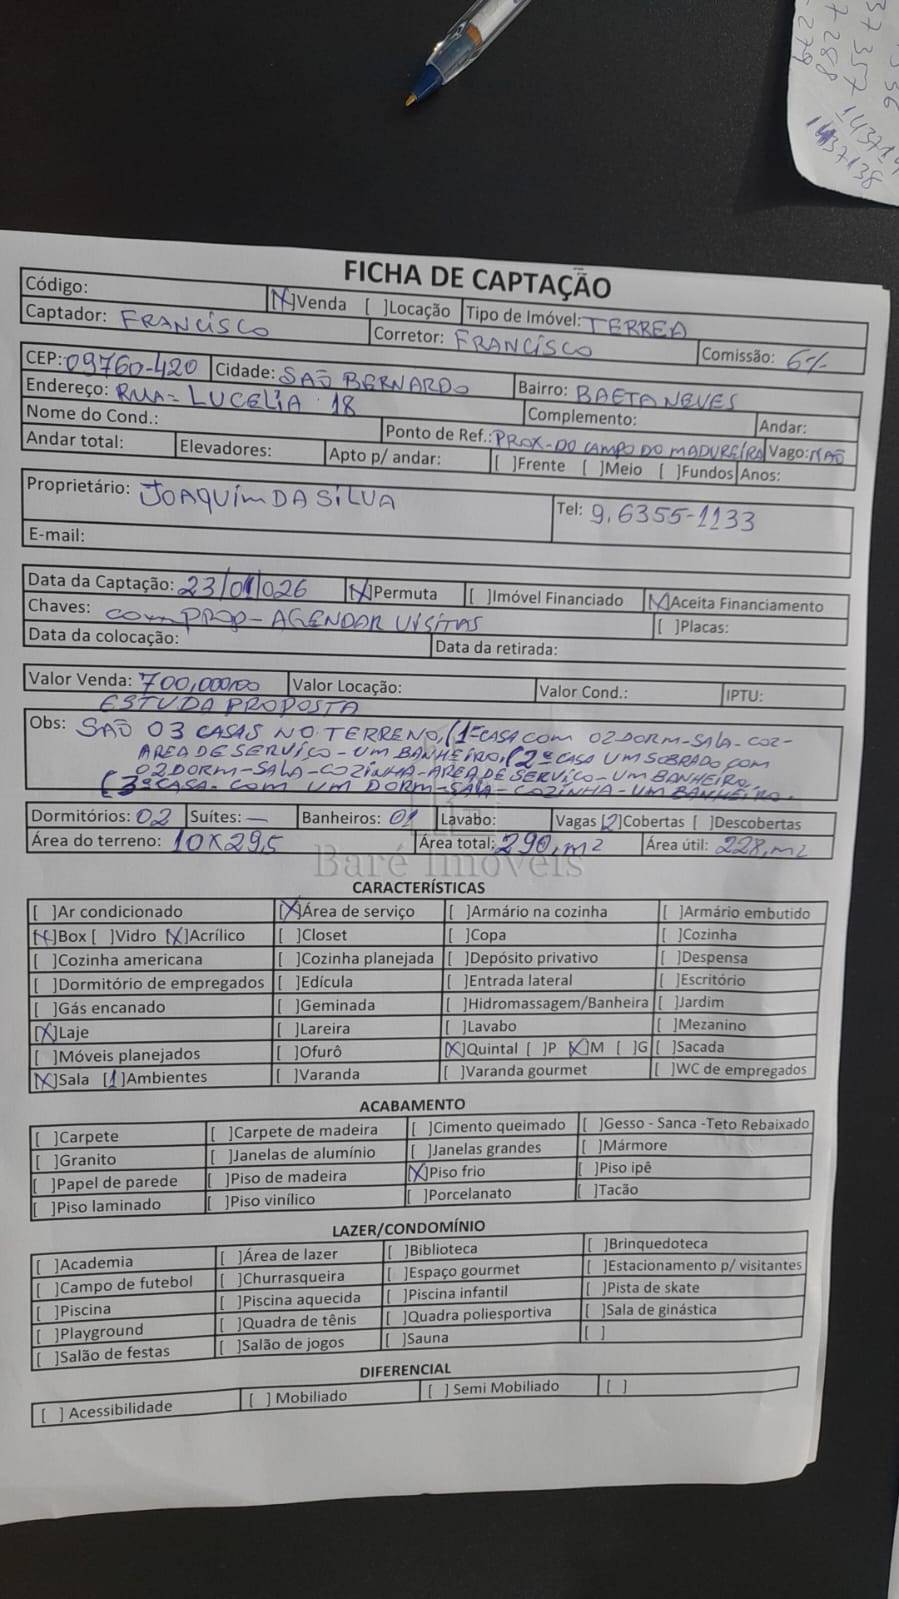 FICHA DE CAPTAÇÃO
Código: [X]Venda [ ]Locação Tipo de Imóvel: TERREA
Captador: FRANCISCO Corretor: FRANCISCO Comissão: 6%
CEP: 09760-420 Cidade: SAÕ BERNARDO Bairro: BAETA NEVES
Endereço: RUA= LUCELIA 18 Complemento: Andar:
Nome do Cond.: Ponto de Ref.: PROX-DO CAMPO DO MADUREIRA Vago: NAÕ
Andar total: Elevadores: Apto p/ andar: [ ]Frente [ ]Meio [ ]Fundos Anos:
Proprietário: JOAQUIM DA SILVA Tel: 9.6355-1133
E-mail:
Data da Captação: 23/01/026 [X]Permuta [ ]Imóvel Financiado [X]Aceita Financiamento
Chaves: com PROP - AGENDAR VISITAS [ ]Placas:
Data da colocação: Data da retirada:
Valor Venda: 700,000,00 Valor Locação: Valor Cond.: IPTU:
ESTUDA PROPOSTA
Obs: SAÕ 03 CASAS NO TERRENO, (1ª CASA COM 02 DORM-SALA-COZ-
AREA DE SERVIÇO - UM BANHEIRO, (2ª CASA UM SOBRADO COM
02 DORM-SALA-COZINHA-AREA DE SERVIÇO-UM BANHEIRO
(3ª CASA. COM UM DORM-SALA-COZINHA-UM BANHEIRO.
Dormitórios: 02 Suítes: — Banheiros: 01 Lavabo: Vagas [2]Cobertas [ ]Descobertas
Área do terreno: 10X29,5 Área total: 290,m2 Área útil: 228,m2
Baré Imóveis
CARACTERÍSTICAS
[ ]Ar condicionado [X]Área de serviço [ ]Armário na cozinha [ ]Armário embutido
[X]Box [ ]Vidro [X]Acrílico [ ]Closet [ ]Copa [ ]Cozinha
[ ]Cozinha americana [ ]Cozinha planejada [ ]Depósito privativo [ ]Despensa
[ ]Dormitório de empregados [ ]Edícula [ ]Entrada lateral [ ]Escritório
[ ]Gás encanado [ ]Geminada [ ]Hidromassagem/Banheira [ ]Jardim
[X]Laje [ ]Lareira [ ]Lavabo [ ]Mezanino
[ ]Móveis planejados [ ]Ofurô [X]Quintal [ ]P [X]M [ ]G [ ]Sacada
[X]Sala [1]Ambientes [ ]Varanda [ ]Varanda gourmet [ ]WC de empregados
ACABAMENTO
[ ]Carpete [ ]Carpete de madeira [ ]Cimento queimado [ ]Gesso - Sanca -Teto Rebaixado
[ ]Granito [ ]Janelas de alumínio [ ]Janelas grandes [ ]Mármore
[ ]Papel de parede [ ]Piso de madeira [X]Piso frio [ ]Piso ipê
[ ]Piso laminado [ ]Piso vinílico [ ]Porcelanato [ ]Tacão
LAZER/CONDOMÍNIO
[ ]Academia [ ]Área de lazer [ ]Biblioteca [ ]Brinquedoteca
[ ]Campo de futebol [ ]Churrasqueira [ ]Espaço gourmet [ ]Estacionamento p/ visitantes
[ ]Piscina [ ]Piscina aquecida [ ]Piscina infantil [ ]Pista de skate
[ ]Playground [ ]Quadra de tênis [ ]Quadra poliesportiva [ ]Sala de ginástica
[ ]Salão de festas [ ]Salão de jogos [ ]Sauna [ ]
DIFERENCIAL
[ ] Acessibilidade [ ] Mobiliado [ ] Semi Mobiliado [ ]